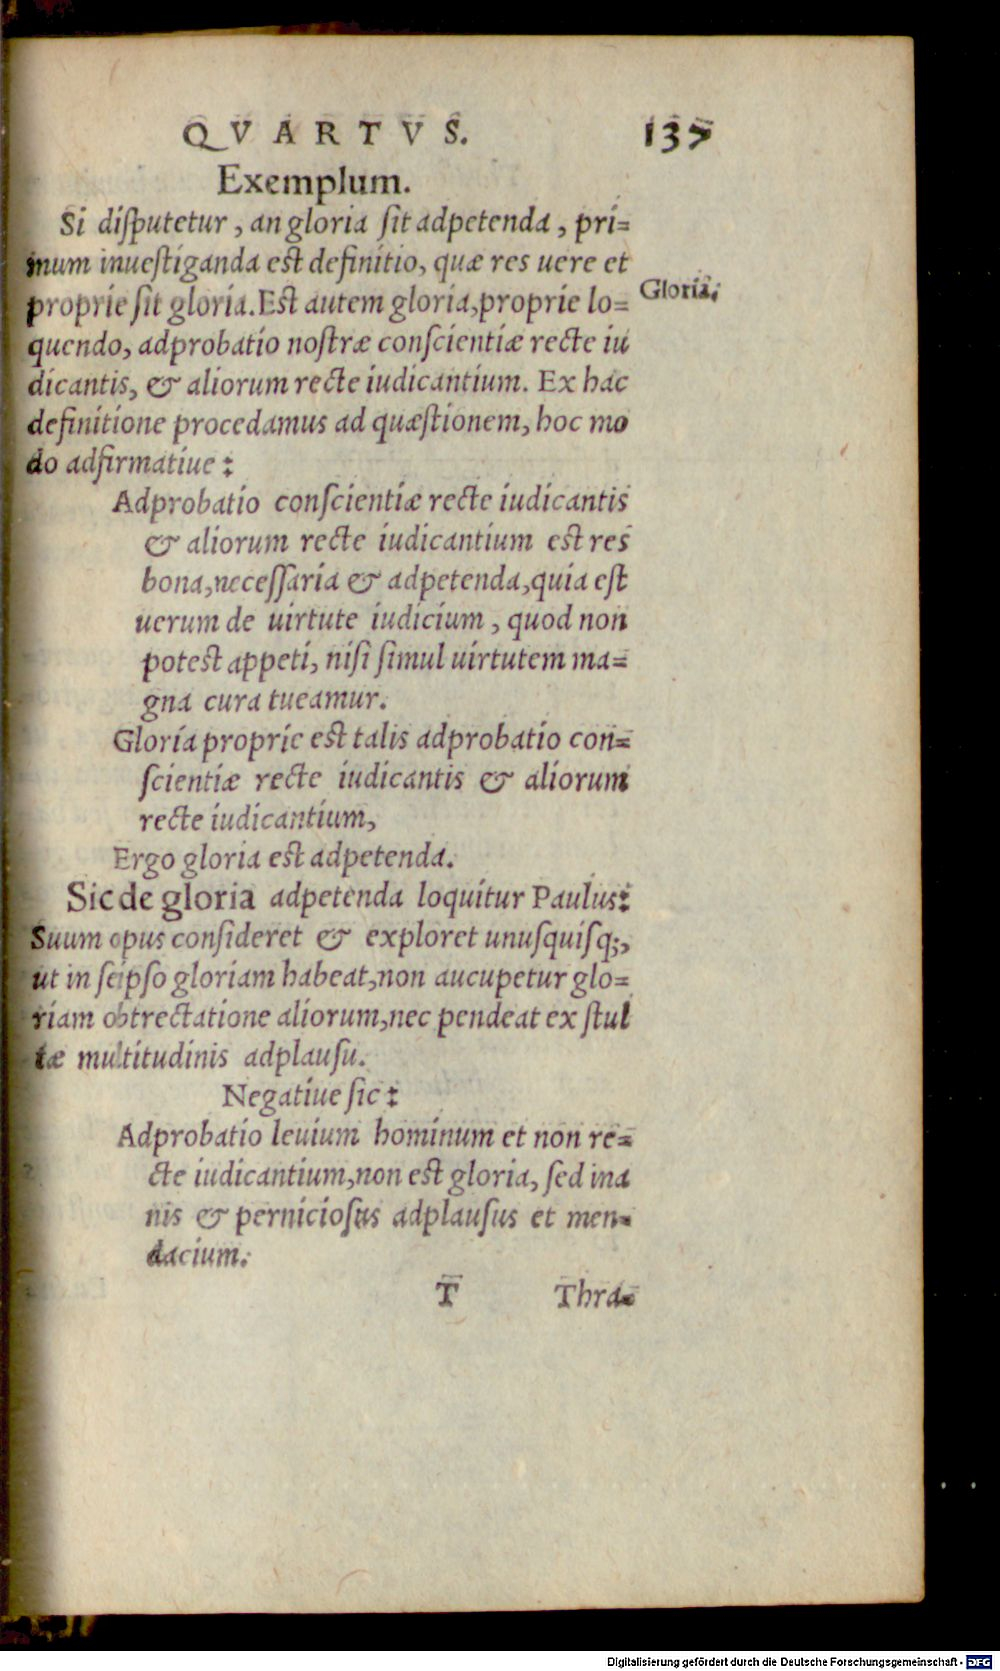 QVARTVS. 137
Exemplum.
Si diſputetur, an gloria ſit adpetenda, pri=
mum inueſtiganda est definitio, quæ res uere et
proprie ſit gloria. Est autem gloria, proprie lo=
Gloria.
quendo, adprobatio noſtræ conſcientiæ recte iu
dicantis, & aliorum recte iudicantium. Ex hac
definitione procedamus ad quæſtionem, hoc mo
do adfirmatiue:
Adprobatio conſcientiæ recte iudicantis
& aliorum recte iudicantium est res
bona, neceſſaria & adpetenda, quia eſt
uerum de uirtute iudicium, quod non
potest appeti, niſi ſimul uirtutem ma=
gna cura tueamur.
Gloria proprie est talis adprobatio con=
ſcientiæ recte iudicantis & aliorum
recte iudicantium,
Ergo gloria est adpetenda.
Sic de gloria adpetenda loquitur Paulus:
Suum opus conſideret & exploret unuſquiſq;,
ut in ſeipſo gloriam habeat, non aucupetur glo=
riam obtrectatione aliorum, nec pendeat ex ſtul
tæ multitudinis adplauſu.
Negatiue ſic:
Adprobatio leuium hominum et non re=
cte iudicantium, non est gloria, ſed ina
nis & pernicioſus adplauſus et men=
dacium.
T Thra=
Digitalisierung gefördert durch die Deutsche Forschungsgemeinschaft - DFG